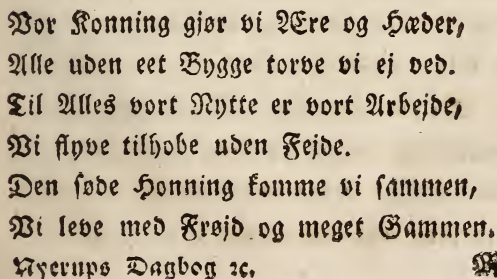 Vor Konning gjør vi Ære og Hæder,
Alle uden eet Bygge torve vi ej ved.
Til Alles vort Nytte er vort Arbejde,
Vi flyve tilhobe uden Fejde.
Den søde Honning komme vi sammen,
Vi leve med Frøjd og meget Gammen.
Nyerups Dagbog ꝛc.